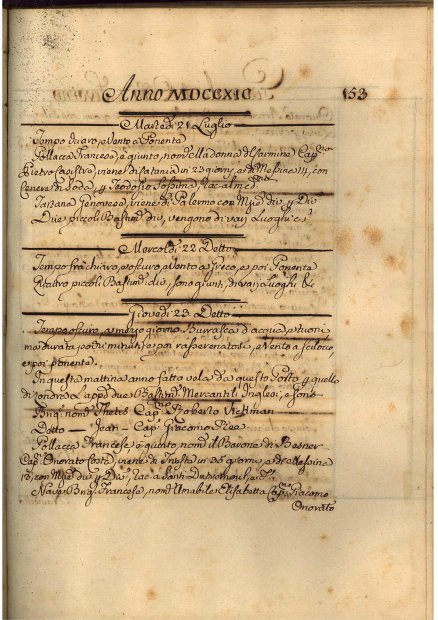 Anno MDCCXIC 153
Martedi 21 Luglio
Tempo chiaro, e Vento a Ponente
Pollacca Francese, è giunto, nom: Madonna di Carmine Cap:
viene di in 23 giorni, e di Messina 14, con
Cenere di Soda, p
Tartana Genovese, viene di Palermo con p Div:
Due piccoli Bastim: div: vengono di varj Luoghi
Mercoldi 22 Detto
Tempo frà chiaro, e oscuro, e Vento a Greco, e poi Ponente
Quatro piccoli Bastim: div: sono giunti, di varj Luoghi &c
Giovedi 23 Detto
Tempo oscuro, a mezo giorno Burrasca d'acqua, e tuoni
ma durata pochi minuti, e poi rasserenatosi, e Vento a Scilocco,
e poi ponente.
In questa mattina anno fatto vela da questo Porto p quello
di Londra L'appd: due Bastim: Mercantili Inglesi, e sono
Brig: nom: Thetis Cap: Roberto
Detto — Jean — Cap: Giacomo
Pollacca Francese è giunto, nom: il Barone di Besner
Cap: Onorato Coste, viene di in 35 giorni, e di Messina
13, con p Div:
Nave Brig: Francese, nom: L'Amabile Elisabetta Cap: Giacomo
Onorato